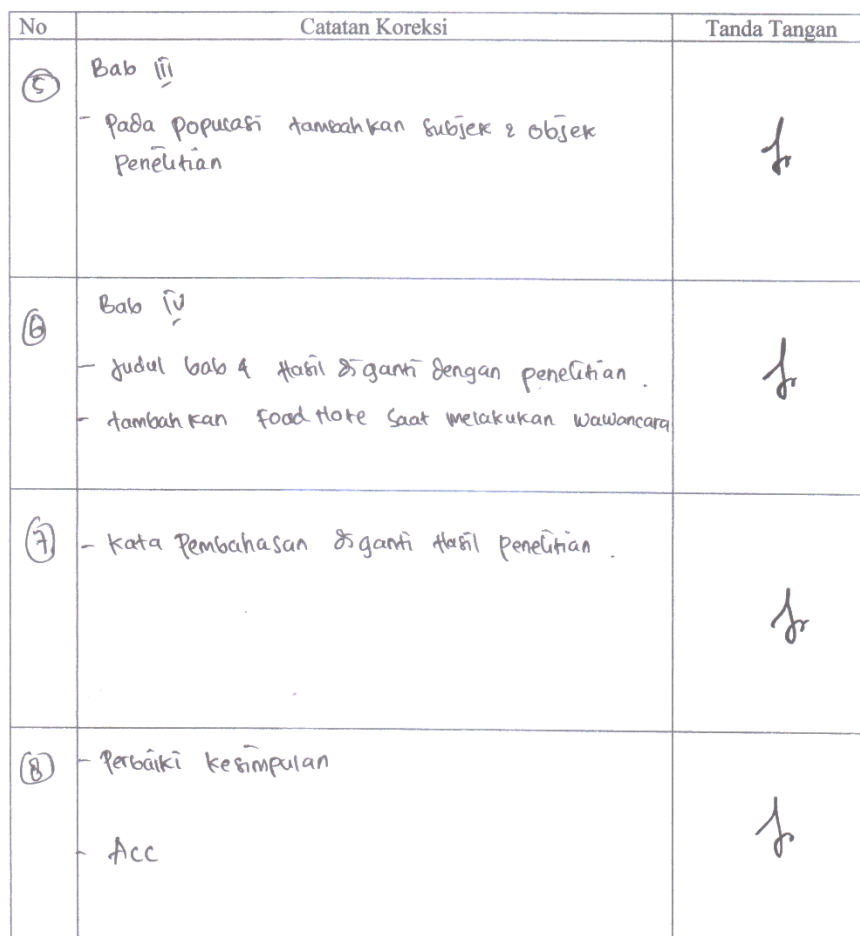 No Catatan Koreksi Tanda Tangan
5 Bab III
- Pada Populasi tambahkan Subjek & objek
Penelitian
6 Bab IV
- Judul bab 4 Hasil diganti dengan penelitian.
- tambahkan food Note Saat melakukan wawancara
7 - Kata Pembahasan diganti Hasil penelitian.
8 - Perbaiki kesimpulan
- Acc